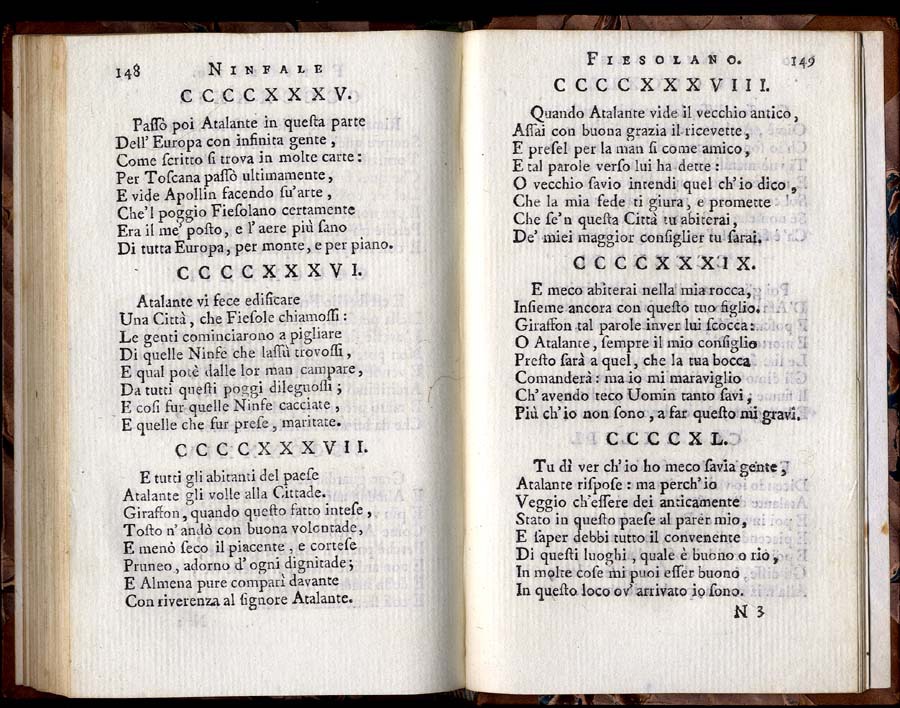 148 NINFALE
CCCCXXXV.
Paſſò poi Atalante in queſta parte
Dell' Europa con infinita gente ,
Come ſcritto ſi trova in molte carte :
Per Toſcana paſsò ultimamente ,
E vide Apollin facendo ſu'arte ,
Che'l poggio Fieſolano certamente
Era il me' poſto, e l' aere più ſano
Di tutta Europa, per monte, e per piano.
CCCCXXXVI.
Atalante vi fece edificare
Una Città , che Fieſole chiamoſſi :
Le genti cominciarono a pigliare
Di quelle Ninfe che laſſù trovoſſi ,
E qual potè dalle lor man campare ,
Da tutti queſti poggi dileguoſſi ;
E coſi fur quelle Ninfe cacciate ,
E quelle che fur preſe , maritate.
CCCCXXXVII.
E tutti gli abitanti del paeſe
Atalante gli volle alla Cittade.
Giraffon, quando queſto fatto inteſe ,
Toſto n' andò con buona volontade,
E menò ſeco il piacente , e corteſe
Pruneo, adorno d' ogni dignitade ;
E Almena pure comparì davante
Con riverenza al ſignore Atalante.
FIESOLANO. 149
CCCCXXXVIII.
Quando Atalante vide il vecchio antico ,
Aſſai con buona grazia il ricevette ,
E preſel per la man ſi come amico ,
E tal parole verſo lui ha dette :
O vecchio ſavio intendi quel ch' io dico ,
Che la mia fede ti giura , e promette
Che ſe'n queſta Città tu abiterai ,
De' miei maggior conſiglier tu ſarai.
CCCCXXXIX.
E meco abiterai nella mia rocca ,
Inſieme ancora con queſto tuo figlio.
Giraffon tal parole inver lui ſcocca :
O Atalante , ſempre il mio conſiglio
Preſto ſarà a quel , che la tua bocca
Comanderà : ma io mi maraviglio
Ch' avendo teco Uomin tanto ſavi ,
Più ch' io non ſono , a far queſto mi gravi.
CCCCXL.
Tu dì ver ch' io ho meco ſavia gente ,
Atalante riſpoſe : ma perch' io
Veggio ch'eſſere dei anticamente
Stato in queſto paeſe al parer mio ,
E ſaper debbi tutto il convenente
Di queſti luoghi , quale è buono o rio ,
In molte coſe mi puoi eſſer buono ,
In queſto loco ov' arrivato io ſono.
N 3